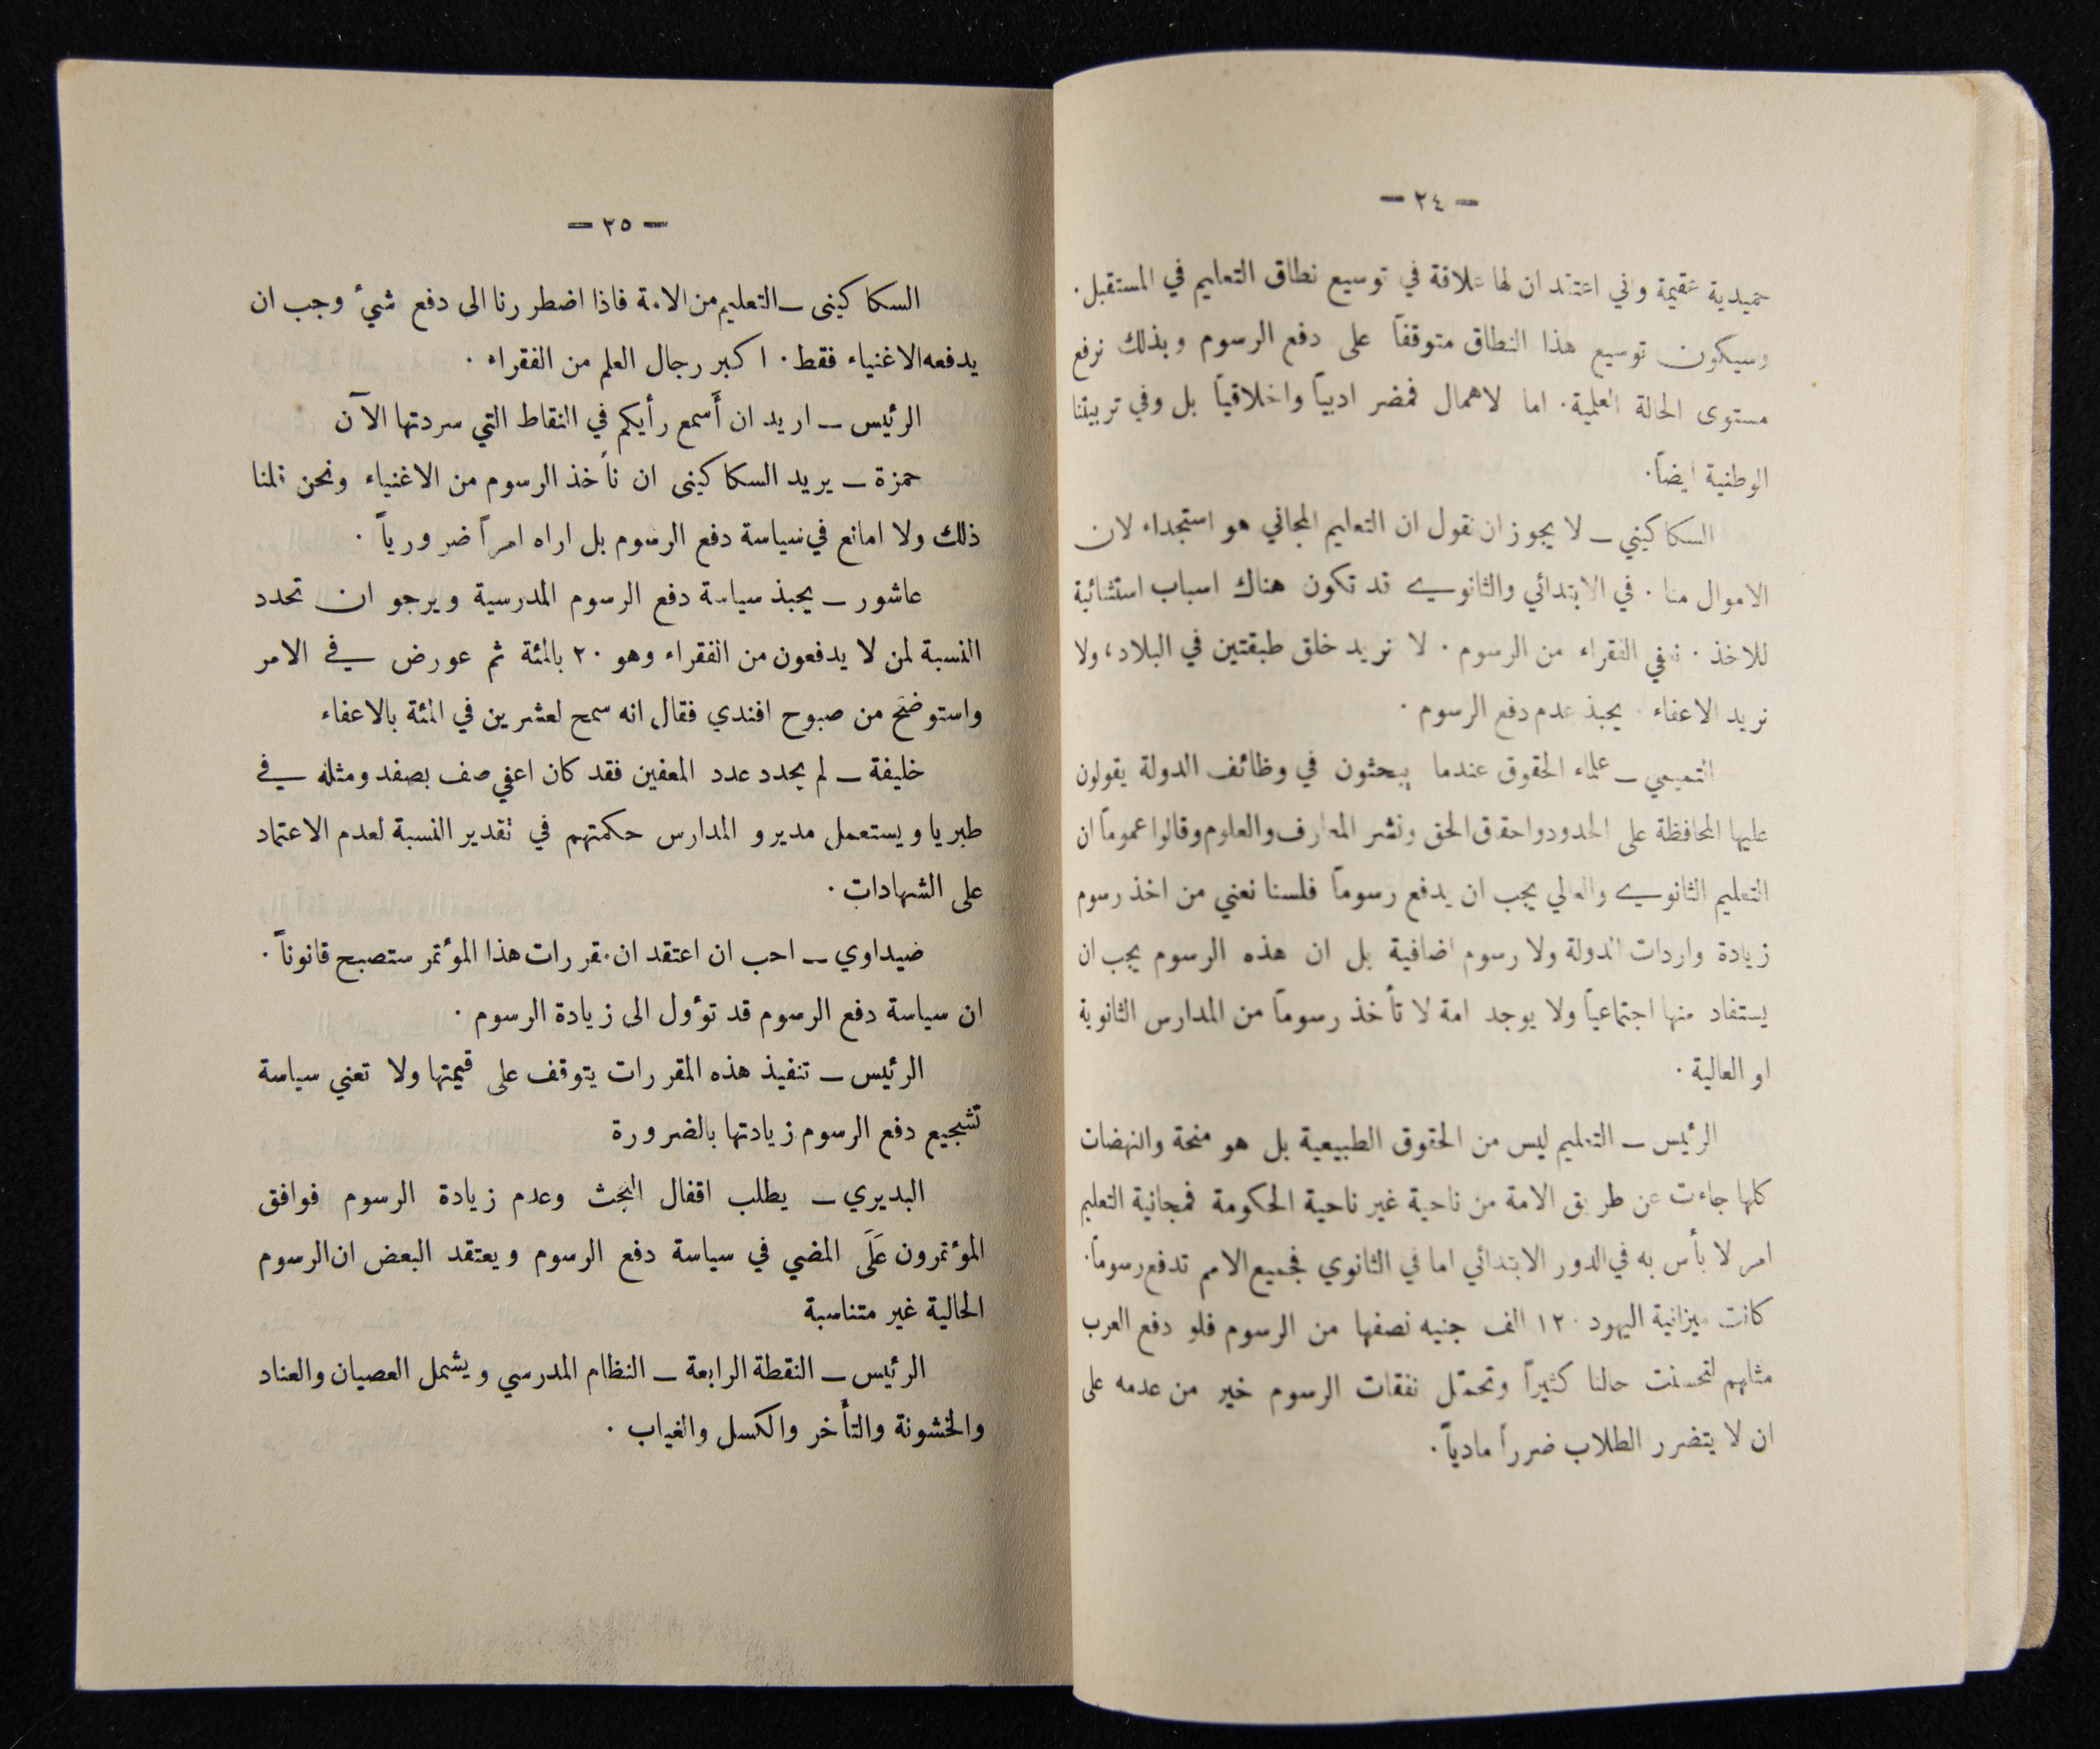 — ٢٤ —
حميدية عقيمة واني اعتقد ان لها علاقة في توسيع نطاق التعليم في المستقبل.
وسيكون توسيع هذا النطاق متوقفاً على دفع الرسوم وبذلك نرفع
مستوى الحالة العلمية. اما لاهمال فمضر ادبياً واخلاقياً بل وفي تربيتنا
الوطنية ايضاً.
السكاكيني ــ لا يجوز ان نقول ان التعليم المجاني هو استجداء لان
الاموال منا. في الابتدائي والثانوي قد تكون هناك اسباب استثنائية
للاخذ. نعفي الفقراء من الرسوم. لا نريد خلق طبقتين في البلاد، ولا
نريد الاعفاء. يحبذ عدم دفع الرسوم.
التميمي ــ علماء الحقوق عندما يبحثون في وظائف الدولة يقولون
عليها المحافظة على الحدود واحقاق الحق ونشر المعارف والعلوم وقالوا عموماً ان
التعليم الثانوي والعالي يجب ان يدفع رسوماً فلسنا نعني من اخذ رسوم
زيادة واردات الدولة ولا رسوم اضافية بل ان هذه الرسوم يجب ان
يستفاد منها اجتماعياً ولا يوجد امة لا تأخذ رسوماً من المدارس الثانوية
او العالية.
الرئيس ــ التعليم ليس من الحقوق الطبيعية بل هو منحة والنهضات
كلها جاءت عن طريق الامة من ناحية غير ناحية الحكومة فمجانية التعليم
امر لا بأس به في الدور الابتدائي اما في الثانوي فجميع الامم تدفع رسوماً.
كانت ميزانية اليهود ١٢٠ الف جنيه نصفها من الرسوم فلو دفع العرب
مثلهم لتحسنت حالنا كثيراً وتحمّل نفقات الرسوم خير من عدمه على
ان لا يتضرر الطلاب ضرراً مادياً.
— ٢٥ —
السكاكيني ــ التعليم من الامة فاذا اضطررنا الى دفع شيء وجب ان
يدفعه الاغنياء فقط. اكبر رجال العلم من الفقراء.
الرئيس ــ اريد ان أسمع رأيكم في النقاط التي سردتها الآن
حمزة ــ يريد السكاكيني ان نأخذ الرسوم من الاغنياء ونحن قلنا
ذلك ولا امانع في سياسة دفع الرسوم بل اراه امراً ضرورياً.
عاشور ــ يحبذ سياسة دفع الرسوم المدرسية ويرجو ان تحدد
النسبة لمن لا يدفعون من الفقراء وهو ٢٠ بالمئة ثم عورض في الامر
واستوضح من صبوح افندي فقال انه سمح لعشرين في المئة بالاعفاء
خليفة ــ لم يحدد عدد المعفين فقد كان اعفي صف بصفد ومثله في
طبريا ويستعمل مديرو المدارس حكمتهم في تقدير النسبة لعدم الاعتماد
على الشهادات.
صيداوي ــ احب ان اعتقد ان مقررات هذا المؤتمر ستصبح قانوناً.
ان سياسة دفع الرسوم قد تؤول الى زيادة الرسوم.
الرئيس ــ تنفيذ هذه المقررات يتوقف على قيمتها ولا تعني سياسة
تشجيع دفع الرسوم زيادتها بالضرورة
البديري ــ يطلب اقفال البحث وعدم زيادة الرسوم فوافق
المؤتمرون عَلَى المضي في سياسة دفع الرسوم ويعتقد البعض ان الرسوم
الحالية غير متناسبة
الرئيس ــ النقطة الرابعة ــ النظام المدرسي ويشمل العصيان والعناد
والخشونة والتأخر والكسل والغياب.